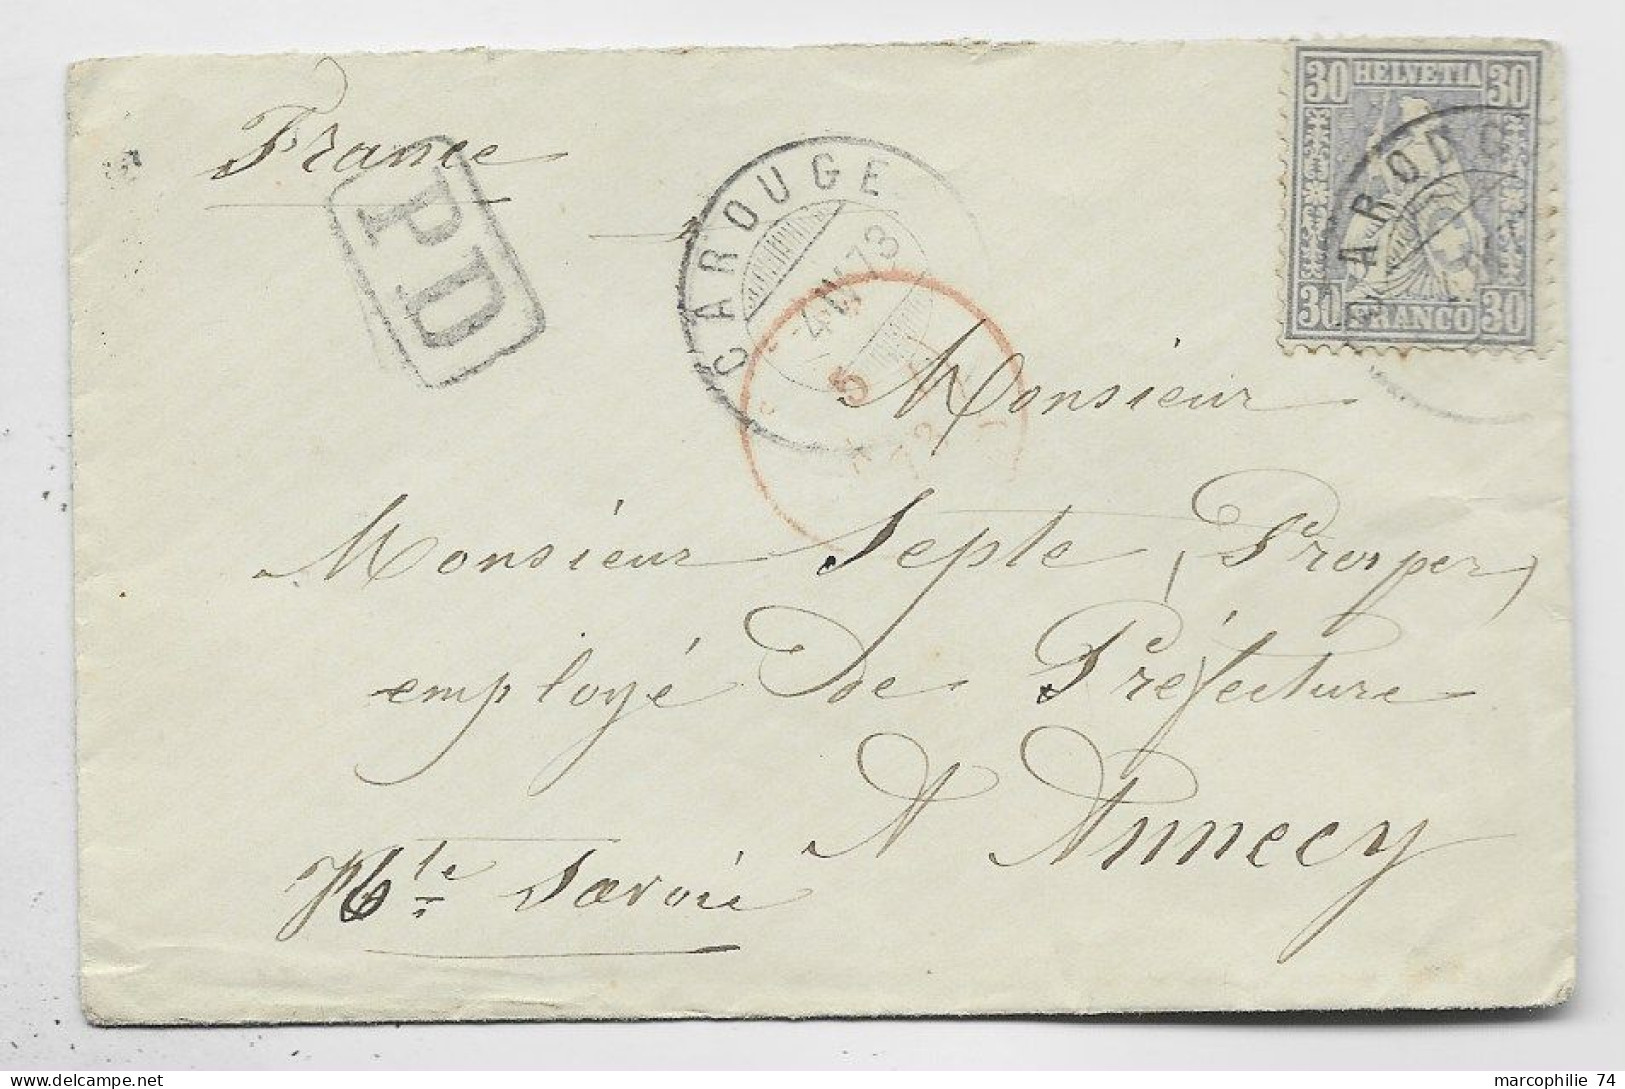 France
PD
CAROUGE
-4.IV.73
30 HELVETIA 30
CAROUGE
30 FRANCO 30
5
73
Monsieur
Monsieur Septe (Prosper)
employé de Préfecture
A Annecy
Hte Savoie
marcophilie 74